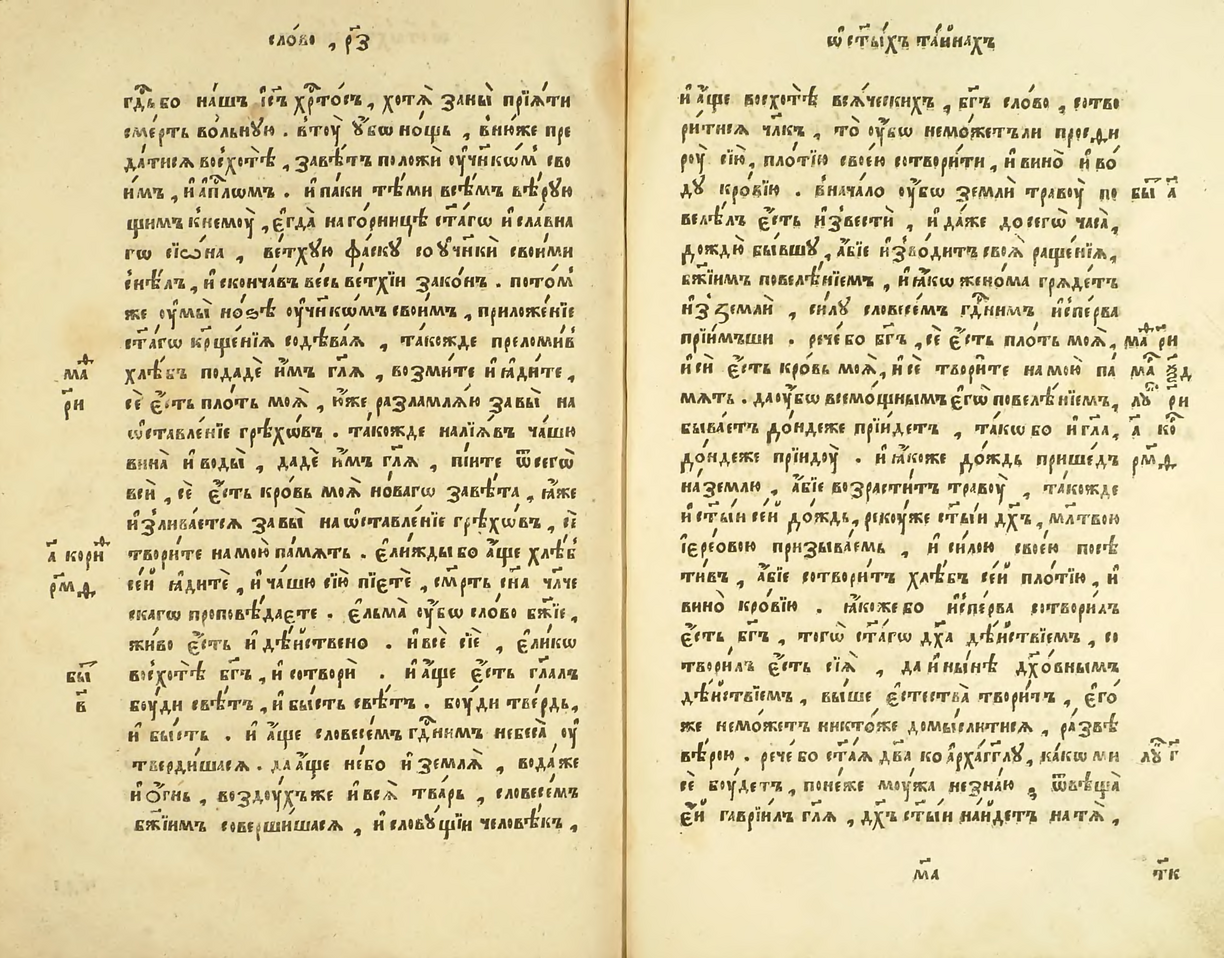 сло́во , р҃з
гдⷭ҇ь бо на́шъ і҆с҃ъ хрⷭ҇то́съ , хотѧ̀ заны̀ прїѧ́ти
сме́рть во́льнꙋю . втоу̀ ᲂу҆́бѡ но́щь , вню́же пре
да́тисѧ восхотѣ̀ , завѣ́тъ положѝ ᲂу҆чн҃кѡ́м сво
и́мъ , и҆ а҆пⷭ҇лѡмъ . и҆ па́ки тѣ́ми всѣ́мъ вѣ́рꙋю
щимъ к̾немоу̀ , є҆гда̀ на го́рницѣ ст҃а́гѡ и҆ сла́вна
гѡ сїѡ́на , ве́тхꙋю фа́скꙋ со ᲂу҆чн҃кѝ свои́ми
снѣ́лъ , и҆ сконча́въ ве́сь ве́тхїи зако́нъ . пото́м
же ᲂу҆мы̀ но́зѣ ᲂу҆чн҃кѡ́мъ свои́мъ , приложе́нїе
ст҃а́гѡ крⷭ҇ще́нїѧ содѣ́ваѧ , та́кожде преломи́в
хлѣ́бъ подадѐ и҆̀мъ гл҃ѧ , возми́те и҆ ꙗ҆ди́те ,
сѐ є҆́сть пло́ть моѧ̀ , ꙗ҆́же разламлѧ́ю за вы̀ на
ѡ҆ставле́нїе грѣхѡ́въ . та́кожде налїѧ́въ ча́шю
вина̀ и҆ воды̀ , дадѐ и҆̀мъ гл҃ѧ , пі́ите ѿ сегѡ̀
всѝ , сѐ є҆́сть кро́вь моѧ̀ но́вагѡ завѣ́та , ꙗ҆́же
и҆злива́етсѧ за вы̀ на ѡ҆ставле́нїе грѣхѡ́въ , сѐ
твори́те на мою̀ па́мѧть . є҆ли́жды бо а҆́ще хлѣ́б
се́й ꙗ҆дитѐ , и҆ ча́шю сїю̀ пїетѐ , см҃рть сн҃а чл҃че
скагѡ проповѣ́даете . є҆льма̀ ᲂу҆́бѡ сло́во бж҃їе ,
жи́во є҆́сть и҆ дѣ́йствено . и҆ всѐ сїѐ , є҆ли́кѡ
восхотѣ̀ бг҃ъ , и҆ сотворѝ . и҆ а҆́ще є҆́сть гл҃алъ
бо́уди свѣ́тъ , и҆ бы́сть свѣ́тъ . бо́уди тве́рдь ,
и҆ бы́сть . и҆ а҆́ще словесе́мъ гдⷭ҇нимъ небеса̀ ᲂу҆
тверди́шасѧ . да а҆́ще не́бо и҆ землѧ̀ , вода́же
и҆ ѻ҆́гнь , во́здоухъже и҆ всѧ̀ тва́рь , словесе́мъ
бж҃їимъ соверши́шасѧ , и҆ словꙋ́щїи человѣ́къ ,
маⷴ҇
р҃и
а҃ кориⷩ҇
рм҃д
бы҃т
в҃
ѡ҆ ст҃ы́хъ та́инахъ
и҆ а҆́ще восхотѣ̀ всѧ́ческихъ , бг҃ъ сло́во , сотво
ри́тисѧ чл҃къ , то ᲂу҆́бѡ немо́жетъли про́сфи
роу̀ сїю̀ , пло́тїю свое́ю сотвори́ти , и҆ вино̀ и҆ во́
дꙋ кро́вїю . в̾нача́ло ᲂу҆́бѡ землѝ травоу̀ по
велѣ́лъ є҆́сть и҆звестѝ , и҆ да́же до сегѡ̀ часа̀ ,
дождю̀ бы́вшꙋ , а҆́бїе и҆зво́дит своѧ̀ раще́нїѧ ,
бж҃їимъ повелѣ́нїемъ , и҆ ꙗ҆́кѡ жено́ма грѧде́тъ
и҆з̾ землѝ , си́лꙋ словесе́мъ гдⷭ҇нимъ и҆спе́рва
прїи́мъши . рече́ бо бг҃ъ , сѐ є҆́сть пло́ть моѧ̀ ,
и҆ сѝ є҆́сть кро́вь моѧ̀ , и҆ сѐ твори́те на мою̀ па́
мѧть . да ᲂу҆́бѡ всемо́щнымъ є҆гѡ̀ повелѣ́нїемъ ,
быва́етъ до́ндеже прїи́детъ , та́кѡ бо и҆ гл҃а ,
до́ндеже прїидоу̀ . и҆ ꙗ҆́коже до́ждь прише́дъ
на зе́млю , а҆́бїе возрасти́тъ травоу̀ , та́кожде
и҆ ст҃ы́и се́й до́ждь , рекоу́же ст҃ы́и дх҃ъ , мл҃твою
і҆ере́овою призыва́емь , и҆ си́лою свое́ю посѣ
ти́въ , а҆́бїе сотвори́тъ хлѣ́бъ се́й пло́тїю , и҆
вино̀ кро́вїю . ꙗ҆́коже бо и҆спе́рва сотвори́лъ
є҆́сть бг҃ъ , тогѡ̀ ст҃а́гѡ дх҃а дѣ́йствїемъ , со
твори́лъ є҆́сть сїѧ̀ , да и҆ ны́нѣ дх҃о́внымъ
дѣ́йствїемъ , вы́ше є҆стества̀ твори́тъ , є҆го́
же немо́жетъ никто́же домы́слитисѧ , ра́звѣ
вѣ́рою . рече́ бо ст҃а́ѧ дв҃а ко а҆рха́гг҃лꙋ , ка́кѡ ми
сѐ бо́удетъ , поне́же мо́ужа незна́ю , ѿвѣща̀
є҆́й гаврїи́лъ гл҃ѧ , дх҃ъ ст҃ы́и на́йдетъ на тѧ̀ ,
бы҃т а҃
маⷴ҇ р҃и
лꙋⷦ҇ р҃и
а҃ коⷬ҇
рм҃д
лꙋⷦ҇ г҃
м҃а
т҃к